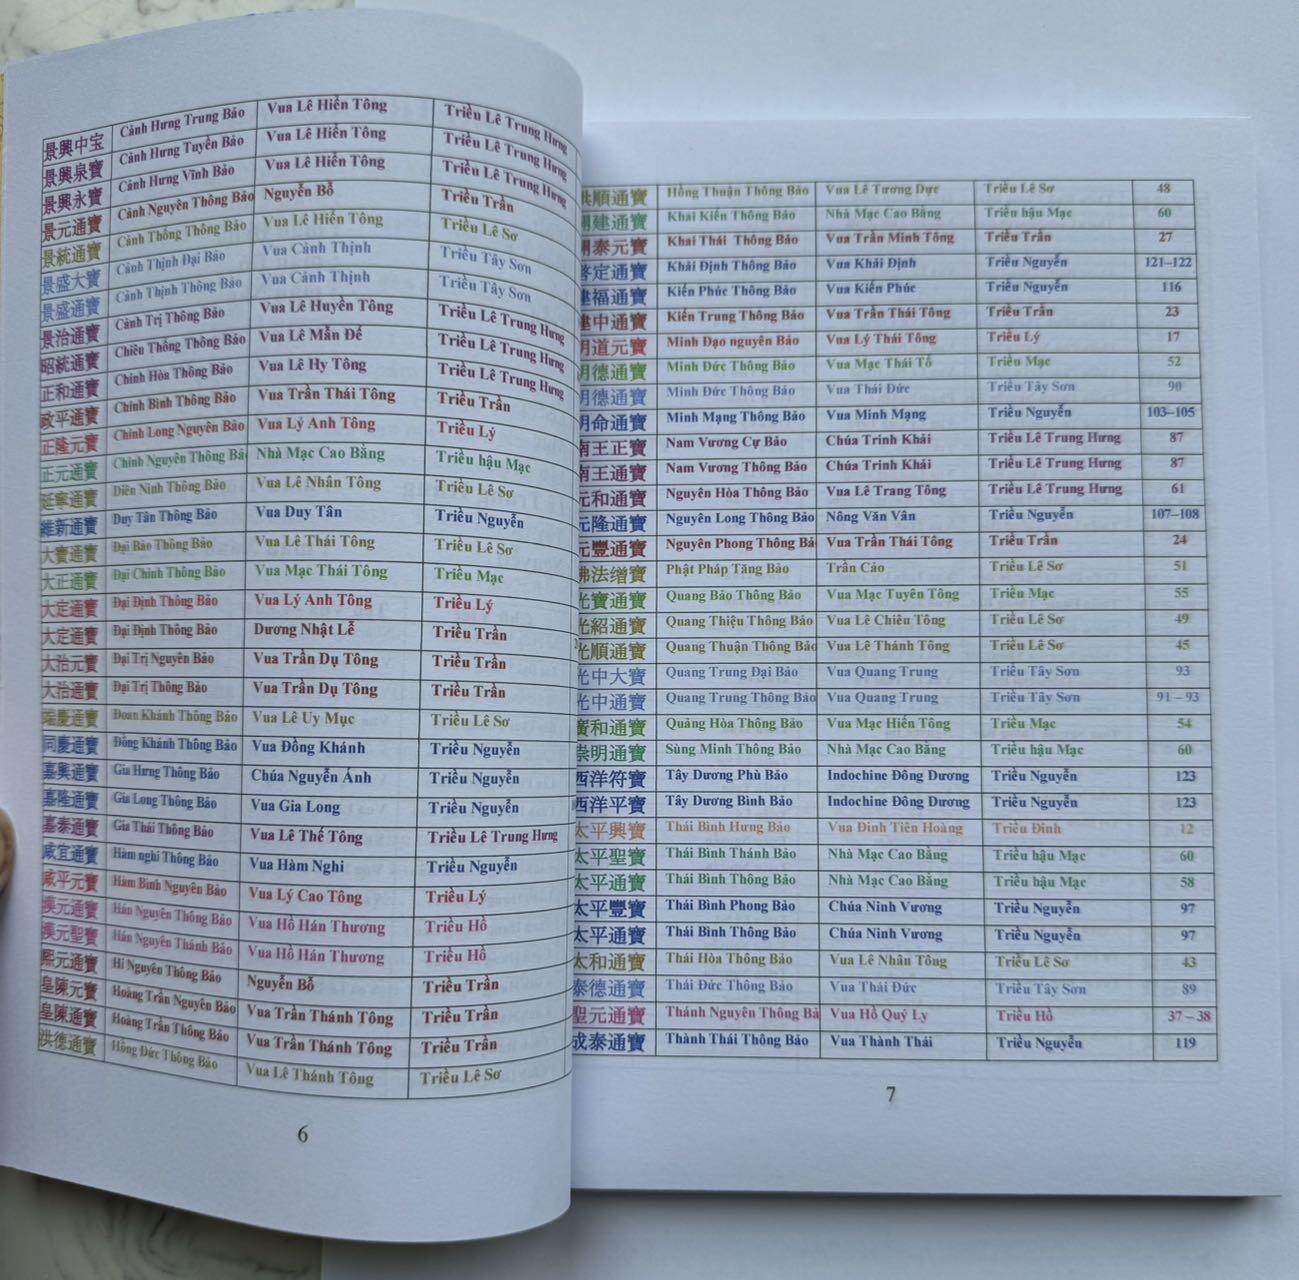 景興中宝 Cảnh Hưng Trung Bảo Vua Lê Hiển Tông Triều Lê Trung Hưng
景興泉寶 Cảnh Hưng Tuyền Bảo Vua Lê Hiển Tông Triều Lê Trung Hưng
景興永寶 Cảnh Hưng Vĩnh Bảo Vua Lê Hiển Tông Triều Lê Trung Hưng
景元通寶 Cảnh Nguyên Thông Bảo Nguyễn Bỗ Triều Trần
景統通寶 Cảnh Thống Thông Bảo Vua Lê Hiến Tông Triều Lê Sơ
景盛大寶 Cảnh Thịnh Đại Bảo Vua Cảnh Thịnh Triều Tây Sơn
景盛通寶 Cảnh Thịnh Thông Bảo Vua Cảnh Thịnh Triều Tây Sơn
景治通寶 Cảnh Trị Thông Bảo Vua Lê Huyền Tông Triều Lê Trung Hưng
昭統通寶 Chiêu Thống Thông Bảo Vua Lê Mẫn Đế Triều Lê Trung Hưng
正和通寶 Chính Hòa Thông Bảo Vua Lê Hy Tông Triều Lê Trung Hưng
政平通寶 Chính Bình Thông Bảo Vua Trần Thái Tông Triều Trần
正隆元寶 Chính Long Nguyên Bảo Vua Lý Anh Tông Triều Lý
正元通寶 Chính Nguyên Thông Bả Nhà Mạc Cao Bằng Triều hậu Mạc
延寧通寶 Diên Ninh Thông Bảo Vua Lê Nhân Tông Triều Lê Sơ
維新通寶 Duy Tân Thông Bảo Vua Duy Tân Triều Nguyễn
大寶通寶 Đại Bảo Thông Bảo Vua Lê Thái Tông Triều Lê Sơ
大正通寶 Đại Chính Thông Bảo Vua Mạc Thái Tông Triều Mạc
大定通寶 Đại Định Thông Bảo Vua Lý Anh Tông Triều Lý
大定通寶 Đại Định Thông Bảo Dương Nhật Lễ Triều Trần
大治元寶 Đại Trị Nguyên Bảo Vua Trần Dụ Tông Triều Trần
大治通寶 Đại Trị Thông Bảo Vua Trần Dụ Tông Triều Trần
瑞慶通寶 Đoan Khánh Thông Bảo Vua Lê Uy Mục Triều Lê Sơ
同慶通寶 Đồng Khánh Thông Bảo Vua Đồng Khánh Triều Nguyễn
嘉興通寶 Gia Hưng Thông Bảo Chúa Nguyễn Ánh Triều Nguyễn
嘉隆通寶 Gia Long Thông Bảo Vua Gia Long Triều Nguyễn
嘉泰通寶 Gia Thái Thông Bảo Vua Lê Thế Tông Triều Lê Trung Hưng
咸宜通寶 Hàm nghi Thông Bảo Vua Hàm Nghi Triều Nguyễn
咸平元寶 Hàm Bình Nguyên Bảo Vua Lý Cao Tông Triều Lý
漢元通寶 Hán Nguyên Thông Bảo Vua Hồ Hán Thương Triều Hồ
漢元聖寶 Hán Nguyên Thánh Bảo Vua Hồ Hán Thương Triều Hồ
熙元通寶 Hi Nguyên Thông Bảo Nguyễn Bỗ Triều Trần
皇陳元寶 Hoàng Trần Nguyên Bảo Vua Trần Thánh Tông Triều Trần
皇陳通寶 Hoàng Trần Thông Bảo Vua Trần Thánh Tông Triều Trần
洪德通寶 Hồng Đức Thông Bảo Vua Lê Thánh Tông Triều Lê Sơ
6
洪順通寶 Hồng Thuận Thông Bảo Vua Lê Tương Dực Triều Lê Sơ 48
開建通寶 Khai Kiến Thông Bảo Nhà Mạc Cao Bằng Triều hậu Mạc 60
開泰元寶 Khai Thái Thông Bảo Vua Trần Minh Tông Triều Trần 27
啓定通寶 Khải Định Thông Bảo Vua Khải Định Triều Nguyễn 121–122
建福通寶 Kiến Phúc Thông Bảo Vua Kiến Phúc Triều Nguyễn 116
建中通寶 Kiến Trung Thông Bảo Vua Trần Thái Tông Triều Trần 23
明道元寶 Minh Đạo nguyên Bảo Vua Lý Thái Tông Triều Lý 17
明德通寶 Minh Đức Thông Bảo Vua Mạc Thái Tổ Triều Mạc 52
明德通寶 Minh Đức Thông Bảo Vua Thái Đức Triều Tây Sơn 90
明命通寶 Minh Mạng Thông Bảo Vua Minh Mạng Triều Nguyễn 103–105
南王正寶 Nam Vương Cự Bảo Chúa Trinh Khải Triều Lê Trung Hưng 87
南王通寶 Nam Vương Thông Bảo Chúa Trinh Khải Triều Lê Trung Hưng 87
元和通寶 Nguyên Hòa Thông Bảo Vua Lê Trang Tông Triều Lê Trung Hưng 61
元隆通寶 Nguyên Long Thông Bảo Nông Văn Vân Triều Nguyễn 107–108
元豐通寶 Nguyên Phong Thông Bả Vua Trần Thái Tông Triều Trần 24
佛法缯寶 Phật Pháp Tăng Bảo Trần Cảo Triều Lê Sơ 51
光寶通寶 Quang Bảo Thông Bảo Vua Mạc Tuyên Tông Triều Mạc 55
光紹通寶 Quang Thiệu Thông Bảo Vua Lê Chiêu Tông Triều Lê Sơ 49
光順通寶 Quang Thuận Thông Bảo Vua Lê Thánh Tông Triều Lê Sơ 45
光中大寶 Quang Trung Đại Bảo Vua Quang Trung Triều Tây Sơn 93
光中通寶 Quang Trung Thông Bảo Vua Quang Trung Triều Tây Sơn 91 – 93
廣和通寶 Quảng Hòa Thông Bảo Vua Mạc Hiến Tông Triều Mạc 54
崇明通寶 Sùng Minh Thông Bảo Nhà Mạc Cao Bằng Triều hậu Mạc 60
西洋符寶 Tây Dương Phù Bảo Indochine Đông Dương Triều Nguyễn 123
西洋平寶 Tây Dương Bình Bảo Indochine Đông Dương Triều Nguyễn 123
太平興寶 Thái Bình Hưng Bảo Vua Đinh Tiên Hoàng Triều Đinh 12
太平聖寶 Thái Bình Thánh Bảo Nhà Mạc Cao Bằng Triều hậu Mạc 60
太平通寶 Thái Bình Thông Bảo Nhà Mạc Cao Bằng Triều hậu Mạc 58
太平豐寶 Thái Bình Phong Bảo Chúa Ninh Vương Triều Nguyễn 97
太平通寶 Thái Bình Thông Bảo Chúa Ninh Vương Triều Nguyễn 97
太和通寶 Thái Hòa Thông Bảo Vua Lê Nhân Tông Triều Lê Sơ 43
泰德通寶 Thái Đức Thông Bảo Vua Thái Đức Triều Tây Sơn 89
聖元通寶 Thánh Nguyên Thông Bả Vua Hồ Quý Ly Triều Hồ 37 – 38
成泰通寶 Thành Thái Thông Bảo Vua Thành Thái Triều Nguyễn 119
7